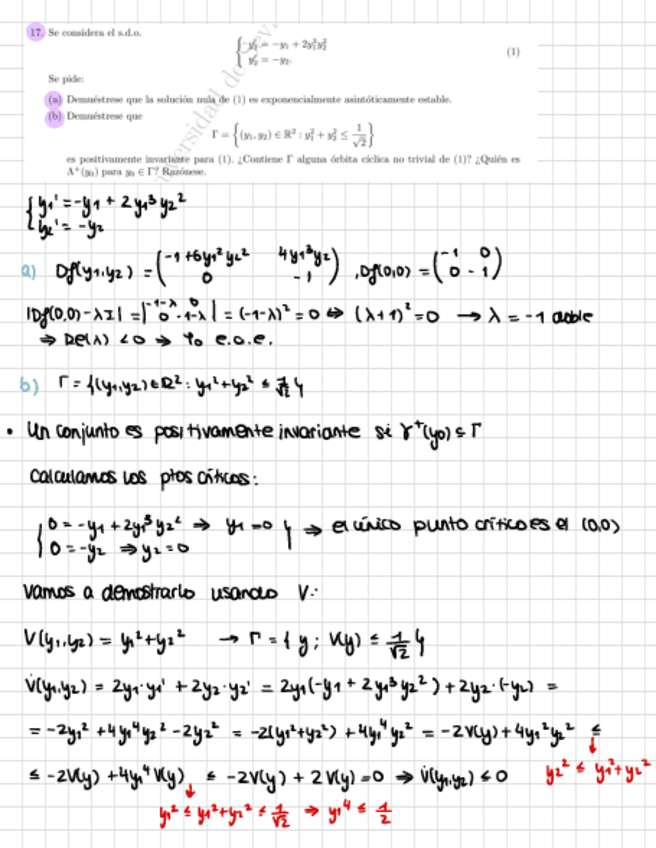 17. Se considera el s.d.o.
{ y₁' = -y₁ + 2y₁³y₂²
y₂' = -y₂. (1)
Se pide:
(a) Demuéstrese que la solución nula de (1) es exponencialmente asintóticamente estable.
(b) Demuéstrese que
Γ = {(y₁, y₂) ∈ ℝ² : y₁² + y₂² ≤ 1/√2}
es positivamente invariante para (1). ¿Contiene Γ alguna órbita cíclica no trivial de (1)? ¿Quién es
Λ⁺(y₀) para y₀ ∈ Γ? Razónese.
{ y₁' = -y₁ + 2y₁³y₂²
y₂' = -y₂
a) Df(y₁,y₂) = (-1+6y₁²y₂² 4y₁³y₂ ; 0 -1), Df(0,0) = (-1 0 ; 0 -1)
|Df(0,0)-λI| = |-1-λ 0 ; 0 -1-λ| = (-1-λ)² = 0 ⇔ (λ+1)² = 0 → λ = -1 doble
⇒ Re(λ) < 0 ⇒ φ₀ e.a.e.
b) Γ = {(y₁,y₂) ∈ ℝ² : y₁²+y₂² ≤ 1/√2}
• Un conjunto es positivamente invariante si γ⁺(y₀) ⊆ Γ
Calculamos los ptos críticos:
{ 0 = -y₁ + 2y₁³y₂² ⇒ y₁ = 0
0 = -y₂ ⇒ y₂ = 0 } ⇒ el único punto crítico es el (0,0)
Vamos a demostrarlo usando V:
V(y₁,y₂) = y₁²+y₂² → Γ = {y ; V(y) ≤ 1/√2}
V̇(y₁,y₂) = 2y₁·y₁' + 2y₂·y₂' = 2y₁(-y₁ + 2y₁³y₂²) + 2y₂·(-y₂) =
= -2y₁² + 4y₁⁴y₂² - 2y₂² = -2(y₁²+y₂²) + 4y₁⁴y₂² = -2V(y) + 4y₁²y₂² ≤
y₂² ≤ y₁²+y₂²
≤ -2V(y) + 4y₁⁴V(y) ≤ -2V(y) + 2V(y) = 0 ⇒ V̇(y₁,y₂) ≤ 0
y₁² ≤ y₁²+y₂² ≤ 1/√2 ⇒ y₁⁴ ≤ 1/2